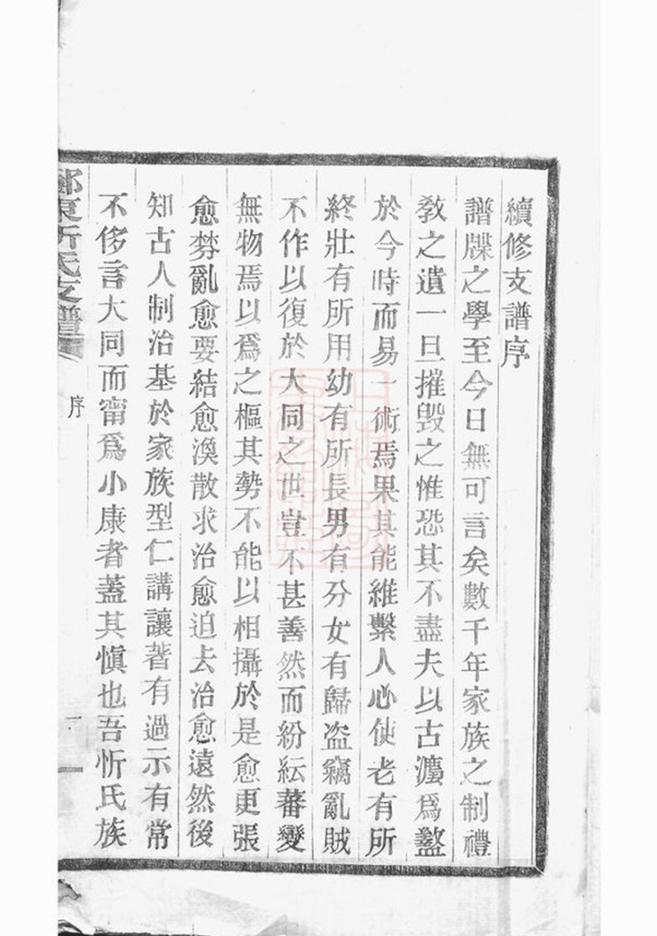 續修支譜序
譜牒之學至今日無可言矣數千年家族之制禮
教之遺一旦摧毀之惟恐其不盡夫以古灋爲盭
於今時而易一術焉果其能維繫人心使老有所
終壯有所用幼有所長男有分女有歸盜竊亂賊
不作以復於大同之世豈不甚善然而紛紜蕃變
無物焉以爲之樞其勢不能以相攝於是愈更張
愈棼亂愈要結愈渙散求治愈迫去治愈遠然後
知古人制治基於家族型仁講讓著有過示有常
不侈言大同而甯爲小康者蓋其愼也吾忻氏族
鄮東忻氏支譜
序
一